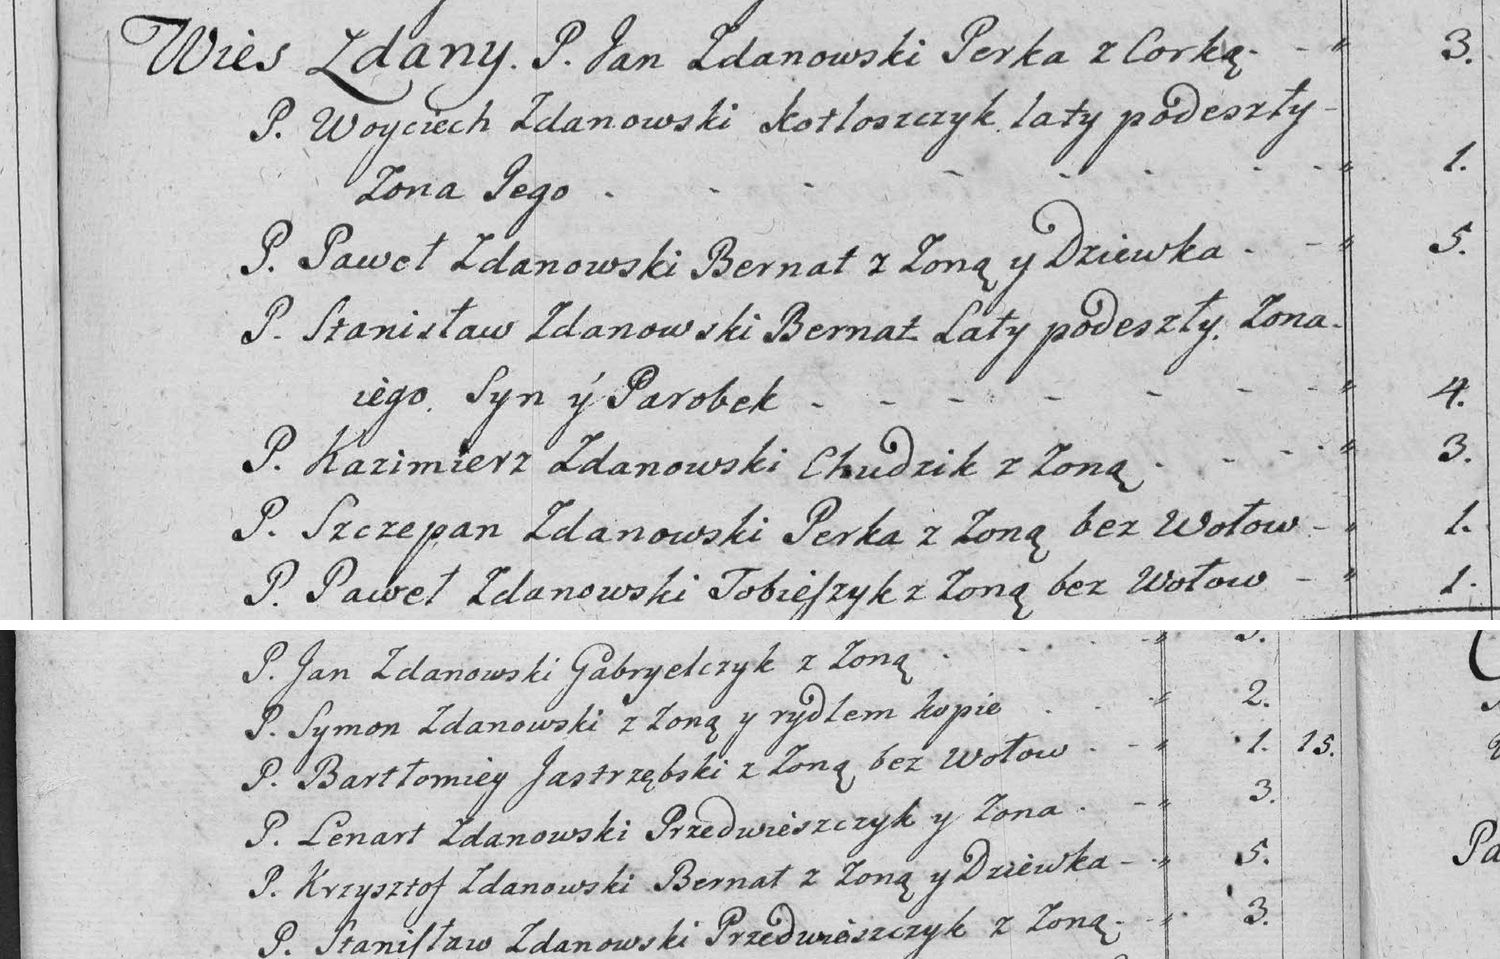 Wies Zdany. P. Jan Zdanowski Perka z Corką. - - " 3.
P. Woyciech Zdanowski Kotloszczyk laty podeszły -
Zona Jego - - - - - - - - " 1.
P. Paweł Zdanowski Bernat z Zoną y Dziewka - - " 5.
P. Stanisław Zdanowski Bernat Laty podeszły. Zona.
iego. Syn ÿ Parobek - - - - - - - - " 4.
P. Kazimierz Zdanowski Chudzik z Zoną - - - - " 3.
P. Szczepan Zdanowski Perka z Zoną bez Wołow - " 1.
P. Paweł Zdanowski Tobieſzyk z Zoną bez Wołow - " 1.
P. Jan Zdanowski Gabryelczyk z Zoną - - - - "
P. Symon Zdanowski z Zoną y rydlem kopie - - - " 2.
P. Bartłomiey Jastrzębski z Zoną bez Wołow - - " 1. 15.
P. Lenart Zdanowski Przedwieszczyk y Zona - - " 3.
P. Krzysztof Zdanowski Bernat z Zoną y Dziewka - - " 5.
P. Staniſław Zdanowski Przedwieszczyk z Zoną - - " 3.
Pa